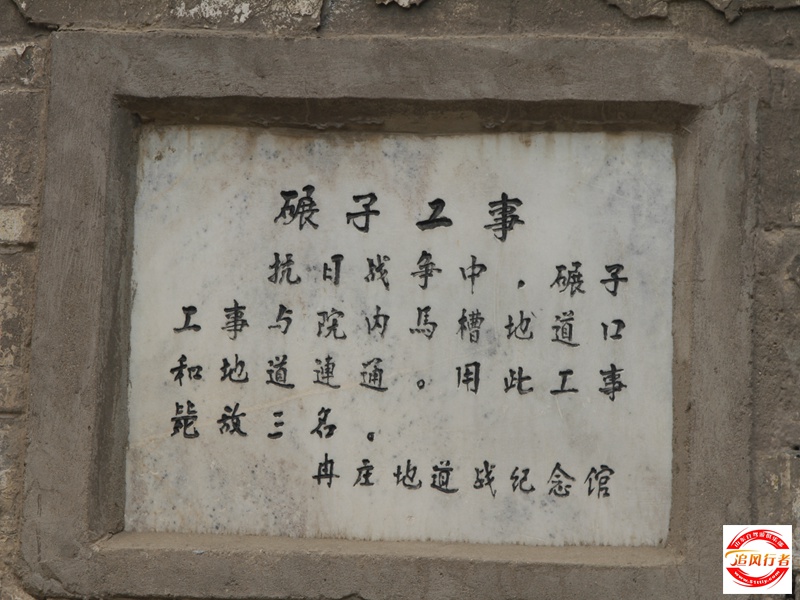 碾子工事
抗日战争中，碾子
工事与院内馬槽地道口
和地道連通。用此工事
毙敌三名。
冉庄地道战纪念馆
追风行者